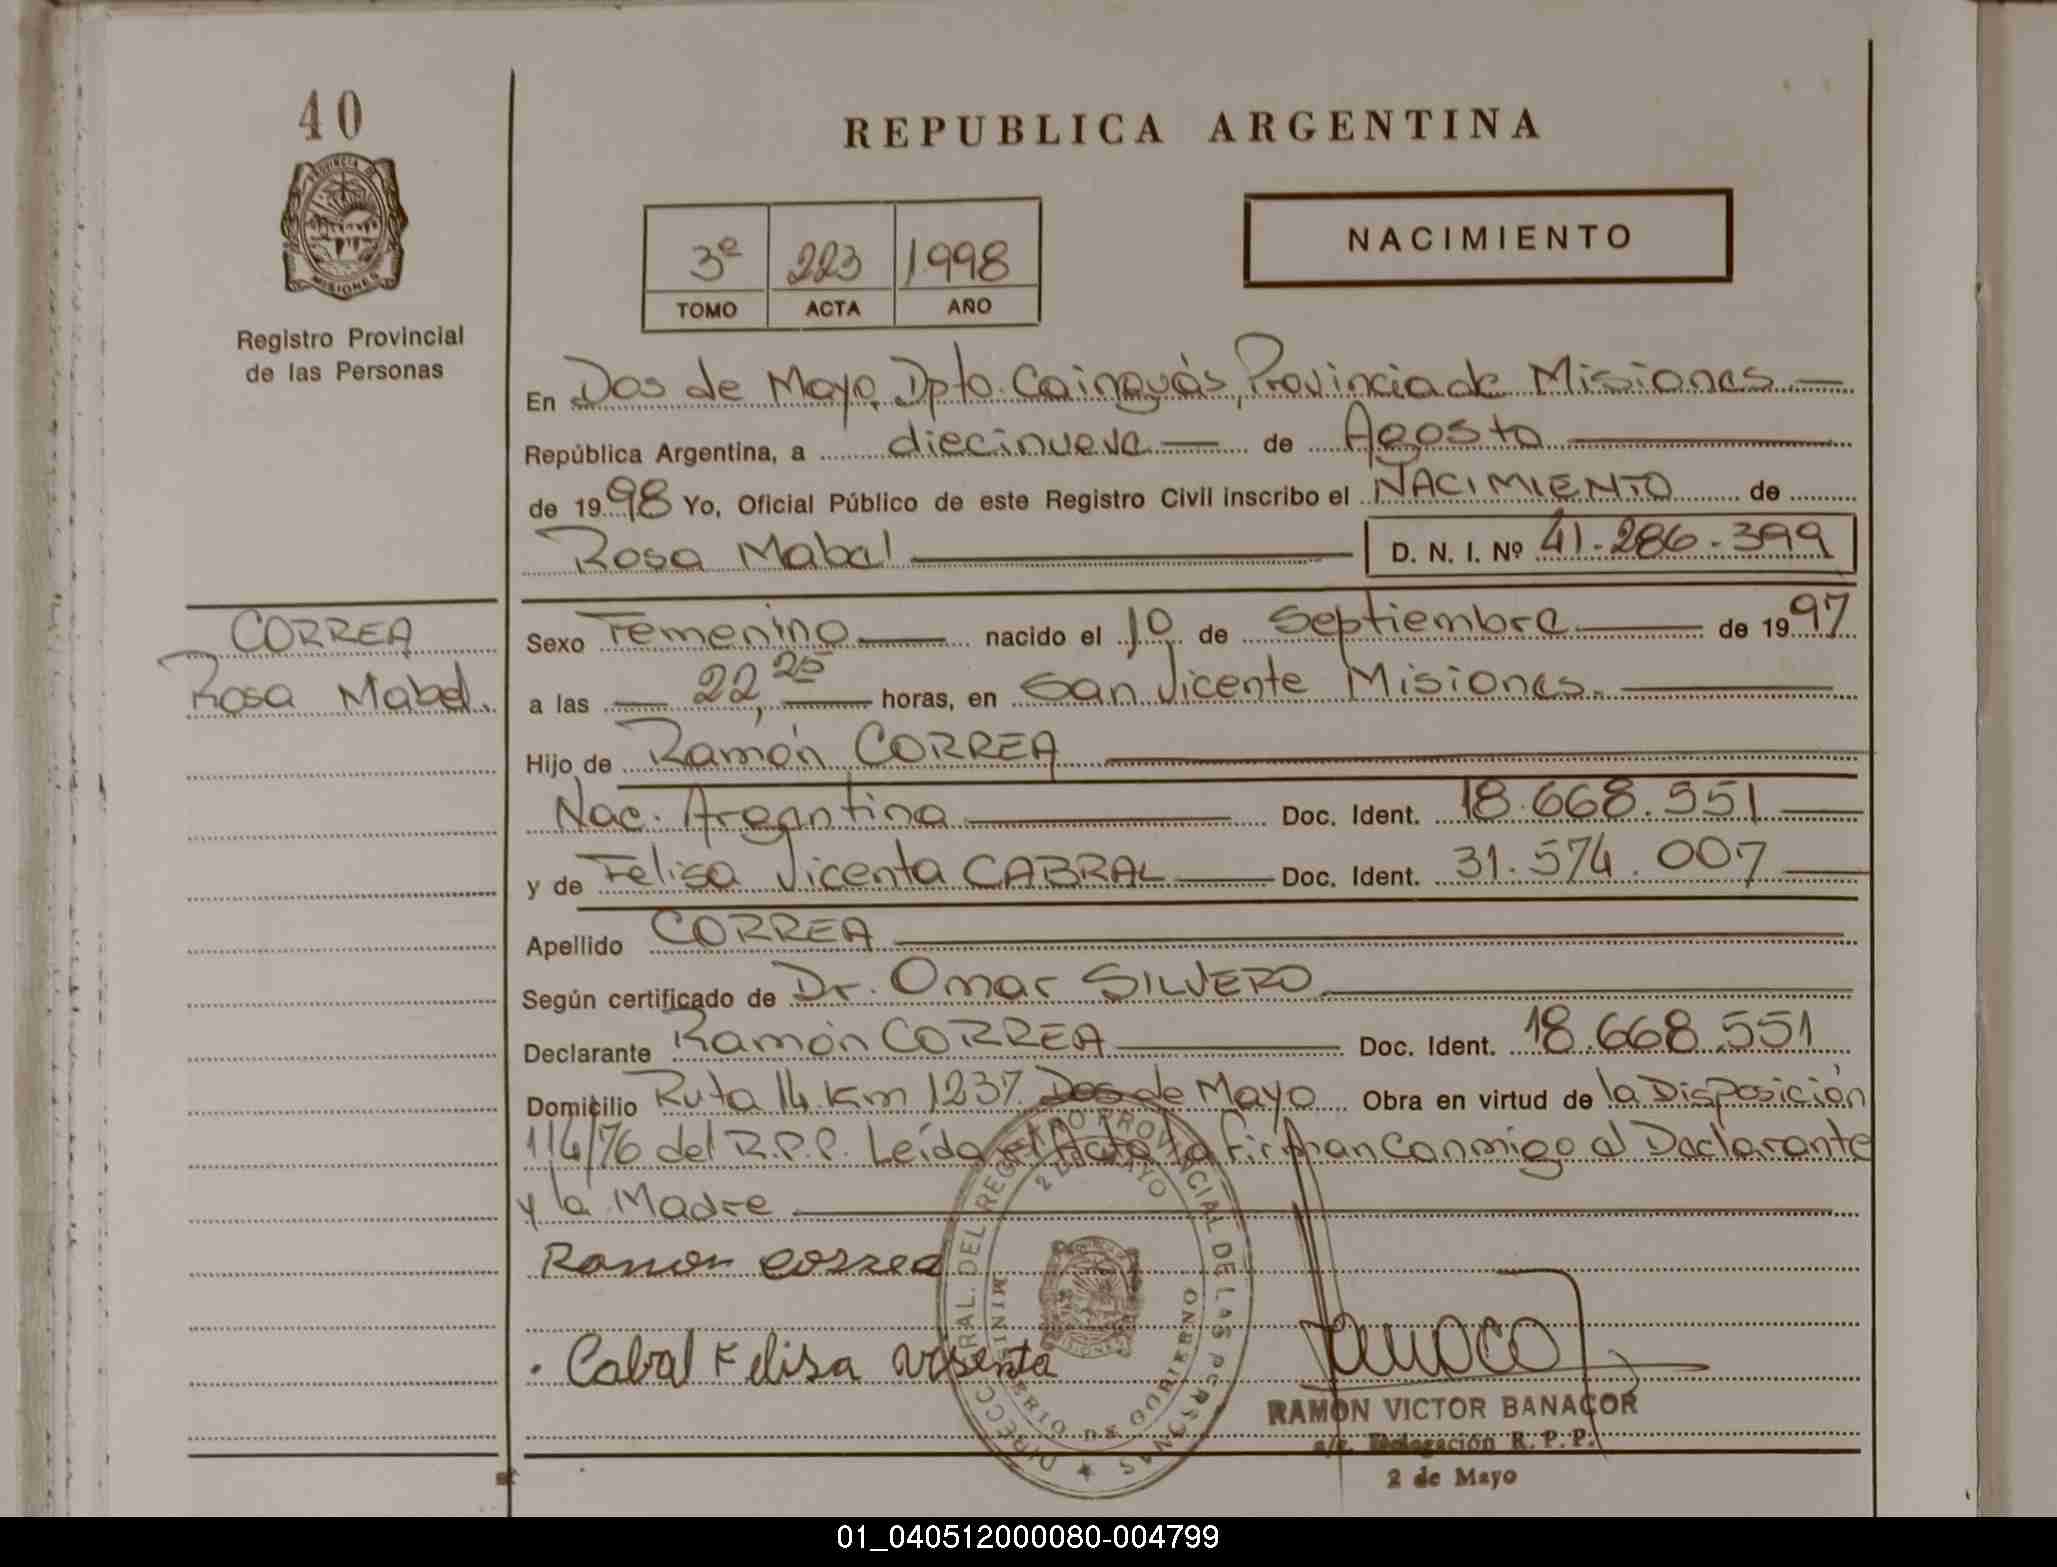 40
PROVINCIA DE
MISIONES
Registro Provincial
de las Personas
REPUBLICA ARGENTINA
3º 223 1998
TOMO ACTA AÑO
NACIMIENTO
En Dos de Mayo, Dpto. Cainguás, Provincia de Misiones
República Argentina, a diecinueve de Agosto
de 1998 Yo, Oficial Público de este Registro Civil inscribo el NACIMIENTO de
Rosa Mabel D. N. I. Nº 41.286.399
CORREA
Rosa Mabel.
Sexo Femenino nacido el 10 de Septiembre de 1997
a las 22,25 horas, en San Vicente Misiones.
Hijo de Ramón CORREA
Nac. Argentina Doc. Ident. 18.668.551
y de Felisa Vicenta CABRAL Doc. Ident. 31.574.007
Apellido CORREA
Según certificado de Dr. Omar SILVERO
Declarante Ramón CORREA Doc. Ident. 18.668.551
Domicilio Ruta 14 Km 1237. Dos de Mayo Obra en virtud de la Disposición
114/76 del R.P.P. Leída el Acta la firman conmigo el Declarante
y la Madre
Ramon correa
Cabral Felisa visenta
DIRECC. GRAL. DEL REGISTRO PROVINCIAL DE LAS PERSONAS
2 DE MAYO
MINISTERIO DE GOBIERNO
RAMON VICTOR BANACOR
a/c. Delegación R. P. P.
2 de Mayo
01_040512000080-004799